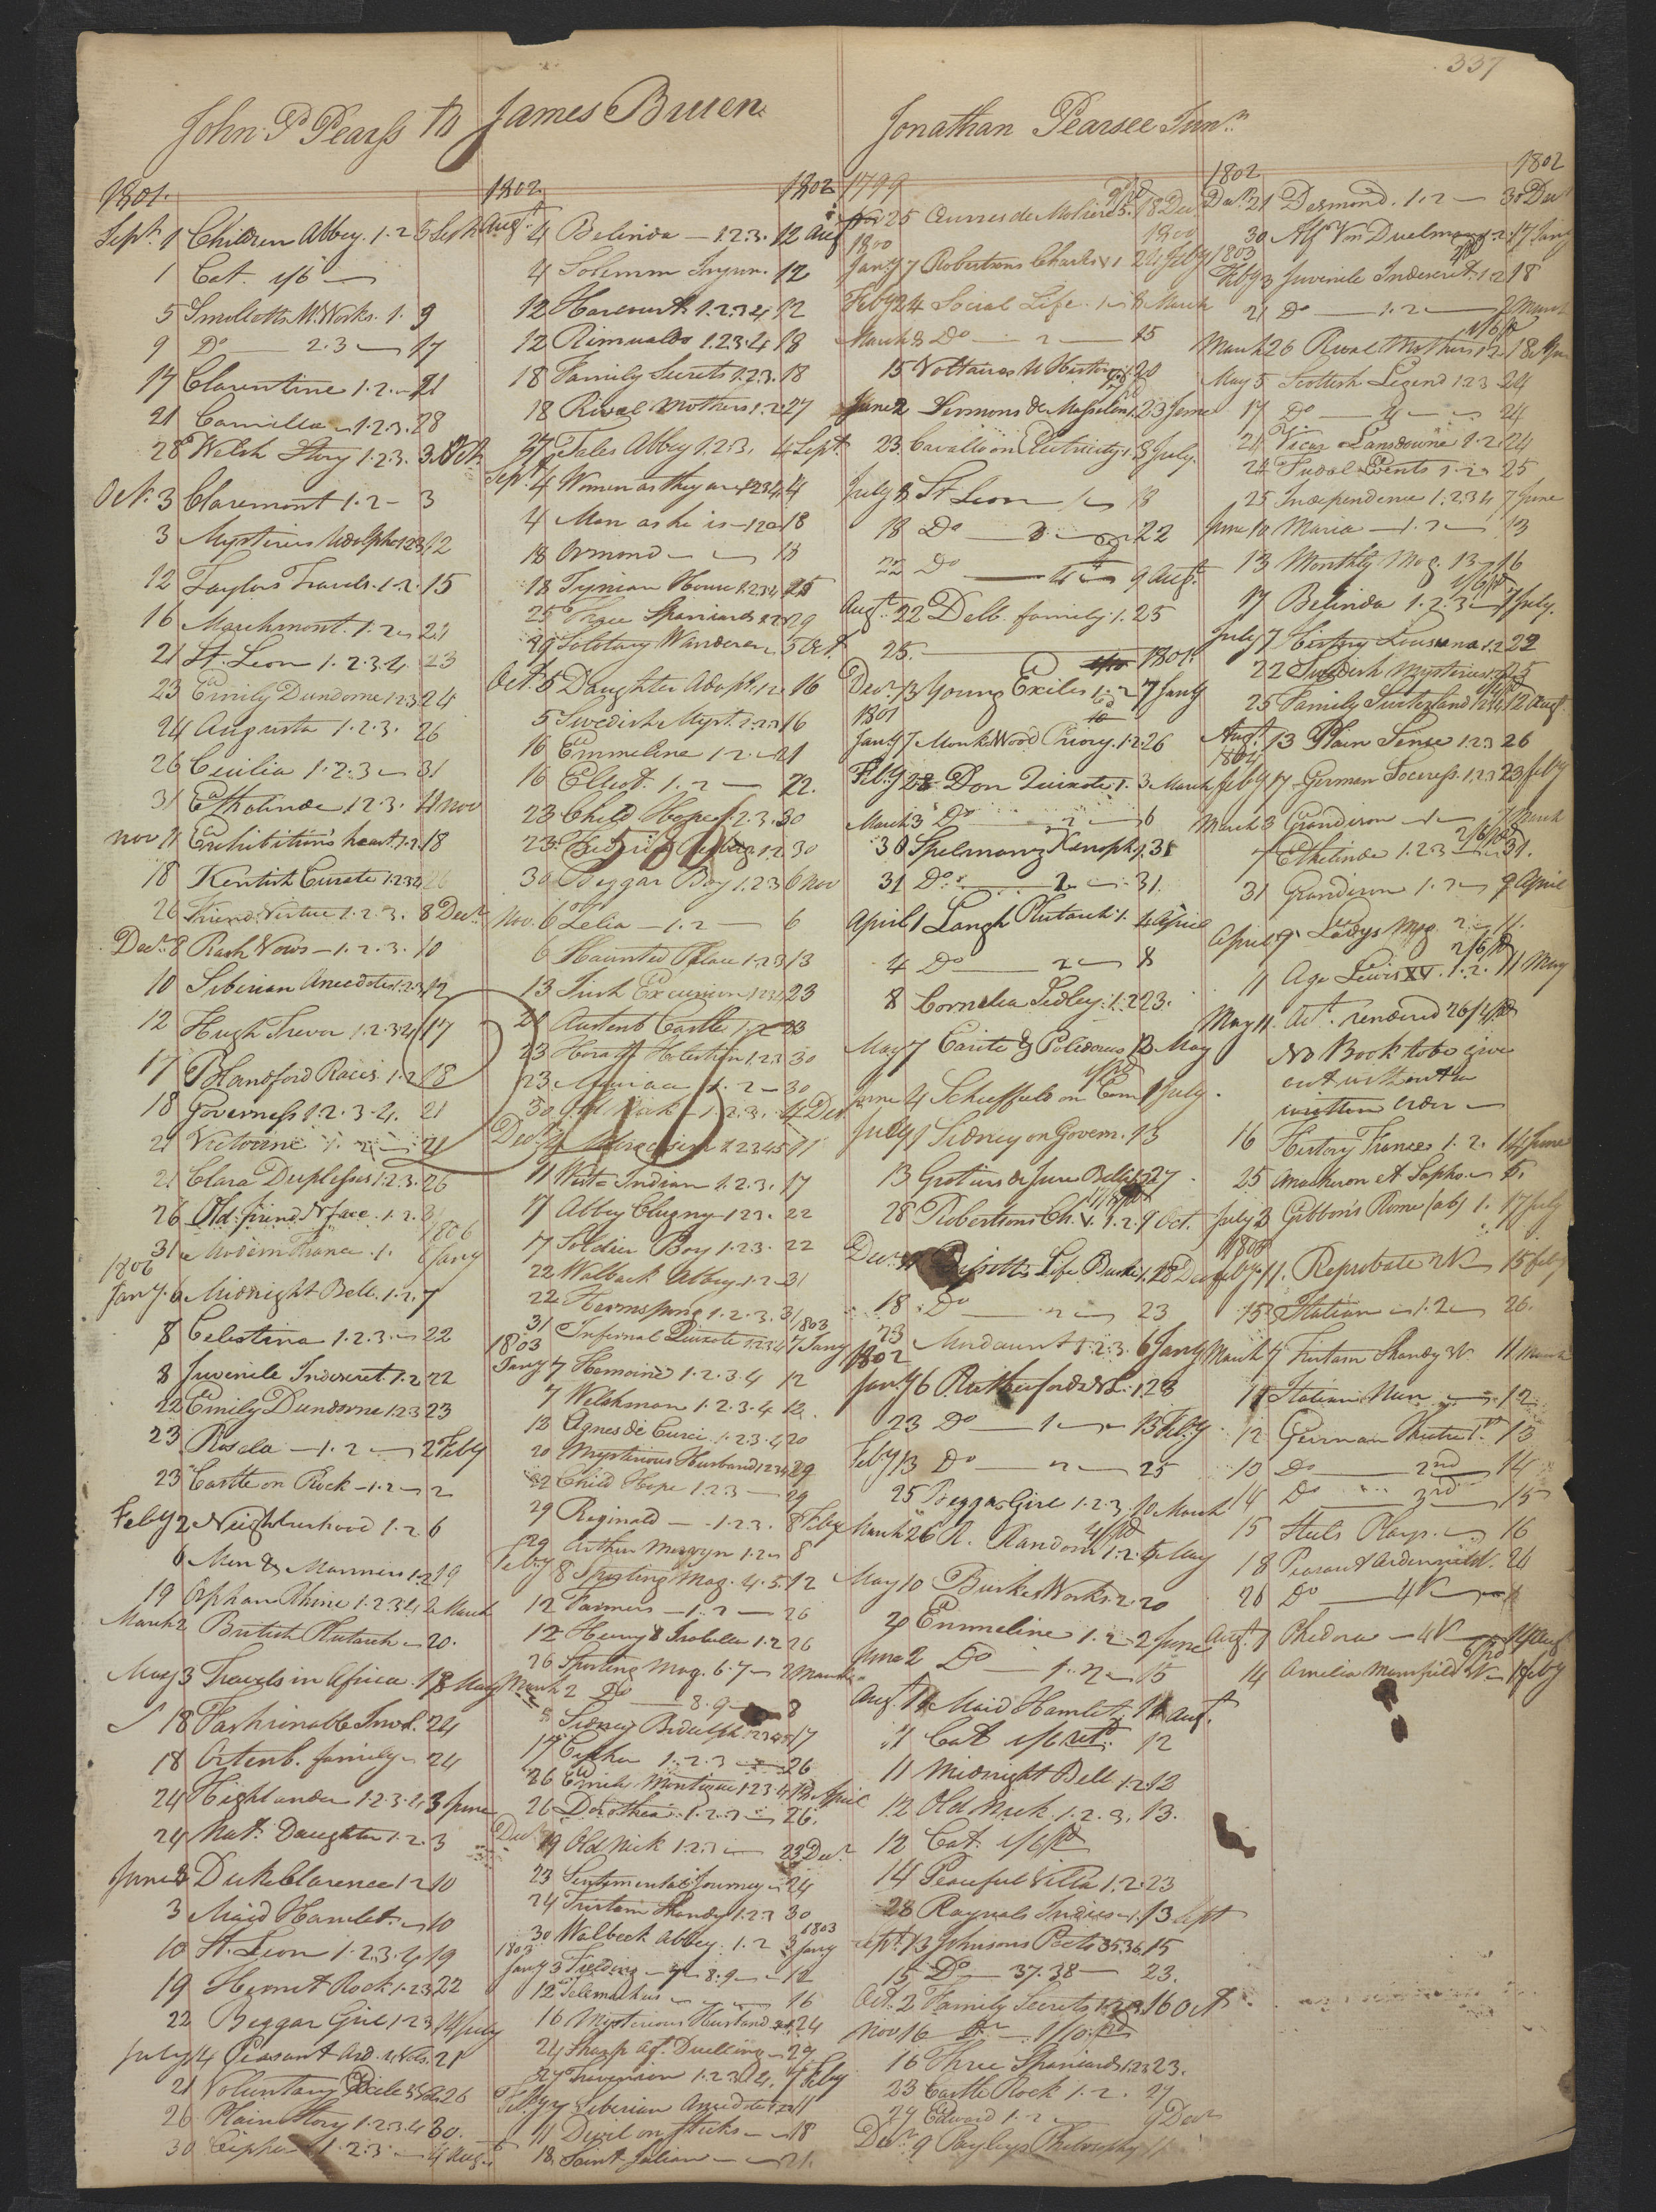 337
John P Pearss to James Bruen
1801.
Sept. 1 Children Abbey. 1. 2 5 Sept
1 Cat. 1/6
5 Smolletts M. Works. 1. 9
9 Do 2. 3 17
17 Clarentine 1. 2. 21
21 Camilla 1. 2. 3. 28
28 Welsh Story 1. 2. 3. 3 Oct
Oct. 3 Claremont 1. 2 3
3 Mysteries Udolpho 1 2 3 12
12 Taylors Travels. 1. 2. 15
16 Marchmont. 1. 2 21
21 St. Leon 1. 2. 3. 4. 23
23 Emily Dundorne 1 2 3 24
24 Augusta 1. 2. 3. 26
26 Cecilia 1. 2. 3 31
31 Ethelinde 1. 2. 3. 11 Nov
Nov 11 Exhibitions heart 1. 2. 18
18 Kentish Curate 1 2 3 4 26
26 Friend Virtue 1. 2. 3. 8 Decr
Decr 8 Rash Vows 1. 2. 3. 10
10 Siberian Anecdotes 1. 2. 3 12
12 Hugh Trevor 1. 2. 3 4 17
17 Blandford Races. 1. 2 18
18 Governess 1. 2. 3. 4. 21
21 Victorine 1. 2 21
21 Clara Duplessis 1. 2. 3. 26
26 Old friend N face. 1. 2. 31
31 Modern France. 1. 6 Jany
Jany. 6 Midnight Bell. 1. 2. 7
8 Celestina 1. 2. 3. 22
8 Juvenile Indiscret. 1. 2 22
22 Emily Dundorne 1 2 3 23
23 Rosela 1. 2 2 Feby
23 Castle on Rock 1. 2 2
Feby 2 Neighbourhood 1. 2 6
6 Men & Manners 1. 2 19
19 Orphan Rhine 1. 2 3 4 2 March
March 2 British Plutarch 20.
May 3 Travels in Africa. 18 May
18 Fashionable Invol. 24
18 Ortenb. family 24
24 Highlander 1. 2. 3. 4 3 June
24 Nat. Daughter 1. 2. 3
June 3 Duke Clarence 1 2 10
3 Maid Hamlet. 10
10 St. Leon 1. 2. 3. 4 19
19 Hermit Rock 1. 2 3 22
22 Beggar Girl 1 2 3 14 July
July 14 Peasant Ard. 4 Vols. 21
21 Voluntary Exile 5 Vols 26
26 Plain Story 1. 2 3. 4 30.
30 Cipher 1. 2. 3 4 Aug
1802 1802
Augt. 4 Belinda 1. 2. 3. 12 Aug
4 Solemn Injun. 12
12 Harcourt 1. 2. 3 4 12
12 Rimualdo 1. 2 3. 4 18
18 Family Secrets 1. 2. 3. 18
18 Rival Mothers 1. 2 27
27 Tales Abbey 1. 2 3. 4 Sept
Sept. 4 Women as they are 1 2 3 4 4
4 Man as he is 18
18 Ormond 18
18 Tynian House 1. 2 3 4 25
25 Three Spaniards 1 2 29
29 Solotary Wanderer 5 Oct.
Oct. 5 Daughter Adopt. 1. 2 16
5 Swedish Myst. 1. 2 3 16
16 Emmeline 1. 2. 21
16 Elliott. 1. 2 22.
23 Child Hope 1. 2. 3. 30
23 30
30 Beggar Boy 1. 2 3 6 Nov
Nov. 6 Zelia 1. 2 6
6 Haunted Palace 1. 2 3 13
13 Irish Excursion 1 2 3 4 23
21 Austenb Castle 1. 2 23
23 Horatio Holstein 1. 2 3 30
23 1. 2 30
30 Old Nick 1. 2. 3. 4 Decr
Decr 4 1 2 3 4 5 11
11 West Indian 1. 2. 3. 17
17 Abbey Clugny 1 2 3. 22
17 Soldier Boy 1. 2 3. 22
22 Walbeck Abbey 1. 2 31
22 Hermsprong 1. 2. 3. 31
31 Infernal Quixote 1. 2 3 4 7 Jany
1803
Jany 7 Hermoine 1. 2. 3. 4 12
7 Welshman 1. 2. 3. 4 12.
12 Agnes de Curci. 1. 2. 3. 4 20
20 Mysterious Husband 1 2 3 4 29
22 Child Hope 1. 2 3 29
29 Reginald 1. 2. 3. 8 Feby
29 Arthur Mervyn 1. 2 8
Feby 8 Sporting Mag. 4. 5. 12
12 Farmers 1. 2 26
12 Henry & Isabella 1. 2 26
26 Sporting Mag. 6. 7 2 March
March 2 Do 8. 9 8
8 Sidney Bidulph 1 2 3 4 5 17
17 Cipher 1. 2. 3 26
26 Emily Montague 1 2 3. 4 13 April
26 Dorothea. 1. 2. 3 26.
Decr 19 Old Nick 1. 2. 3 23 Decr
23 Sentimental Journey 24
24 Tristam Shandy 1. 2. 3 30
30 Walbeck Abbey. 1. 2 3 Jany
1803 1803
Jany 3 Fielding 7 8. 9 12
12 Telemachus 16
16 Mysterious Husband 24
24 Sharp agt. Duelling 27
27 Trevanion 1. 2 3. 4. 7 Feby
Feby 7 Siberian Anecdotes 1 2 3 11
11 Devil on Sticks 18
18 Saint Julian 21.
Jonathan Pearsee Junr.
1799
25 Œuvres de Moliere 5. 18 Decr
1800 1800
Jany 7 Robertsons Charles V 1 24 Feby
Feby 24 Social Life. 1 8 March
March 8 Do 2 15
15 Voltaires U History 1. 20
June 2 Sermons de Massilon 1. 23 June
23. Cavallo on Electricity 1. 8 July.
July 8 St Leon 1 18
18 Do 22
22 Do 4 9 Augt.
Augt. 22 Delb. family. 1. 25
25. 1801
Decr. 13 Young Exiles 1. 2 7 Jany
1801
Jany 7 Monk Wood Priory. 1. 2 26
Feby 28 Don Quixote 1. 3 March
March 3 Do 2 6
30 Spelmans Xenoph. 1. 31
31 Do. 2 31.
April 1 Langh Plutarch 1. 4 April
4 Do 2 8
8 Cornelia Sedley. 1. 2 23.
May 7 Carite & Polidorus 13 May
June 4 Scheffels on Com 1 July.
July 1 Sidney on Govern. 13
13 Grotius de Jure Bellis 27
28 Robertsons Ch. V. 1. 2. 9 Oct.
Decr. Bissetts Life Burke 1. 18 Decr
18 Do 2 23
23 Mordaunt 1. 2. 3. 6 Jany
1802
Jany 6 Rutherfords N L. 1 23
23 Do 1 13 Feby
Feby 13 Do 2 25
25 Beggar Girl 1. 2. 3. 10 March
March 26 R. Random 1. 2. 5 May
May 10 Burkes Works. 2. 20
20 Emmeline 1. 2 2 June
June 2 Do 1. 2 15
Aug. 10 Maid Hamlet, 11 Augt.
11 Cat 1/6 retd. 12
11 Midnight Bell 1. 2 12
12 Old Nick. 1. 2. 3. 13.
12 Cat. 1/6 pd
14 Peaceful Villa 1. 2. 23
28 Raynals Indies 1. 13 Sept
Sept. 13 Johnsons Poets 35 36. 15
15 Do 37. 38 23.
Oct. 2 Family Secrets 1. 2. 3. 16 Oct
Nov 16 1/10. pd
16 Three Spaniards 1. 2. 3 23.
23 Castle Rock 1. 2. 27
29 Edward 1. 2 9 Decr
Decr 9 Payleys Philosophy
1802 1802
Decr. 21 Desmond. 1. 2 30 Decr
30 Alf Von Duelman 1. 2. 17 Jany
1803
Feby 3 Juvenile Indiscret. 1. 2 18
21 Do 1. 2 2 March
March 26 Rival Mothers 1 2
May 5 Scottish Legend 1 2 3 24
17 Do 4 24
21 Vicar Lansdowne 1. 2 24
24 Fudal Events 1. 2 25
25 Independence 1. 2. 3 4 7 June
June 10 Maria 1. 2 13
13 Monthly Mag. 13 16
17 Belinda 1. 2. 3 7 July.
July 7 History Lousiana 1. 2 22
22 Swedish Mysteries 25
25 Family Surterland 12 Aug.
Augt. 13 Plain Sense 1. 2 3 26
1804
Feby 17 German Soceress. 1. 2 3 23 Feby
March 3 Grandison 1 7 March
7 Ethelinde 1. 2 3 31.
31 Grandison 1. 2 9 April
April 9 Ladys Mag. 2 11.
11 Age Lewis XV. 1. 2. 11 May
May 11. Act. rendered 26/4 pd
No Book to be give
out without a
written order
16 History France 1. 2. 14 June
25 Anacheron et Sapho 5.
July 3 Gibbon's Rome (ab) 1. 17 July
Feby 11. Reprobate 2 V 15 Feby
15 Italian 1. 2 26.
March 7 Tristam Shandy 3 V. 11 March
11 Italian Nun 12
12 German Theatre 1st 13
13 Do 2nd 14
14 Do 3rd 15
15 Steels Plays. 16
18 Peasant Ardennield. 26
26 Do 4 V
Augt. 7 Phedora 4 V 14 Aug
14 Amelia Mansfield